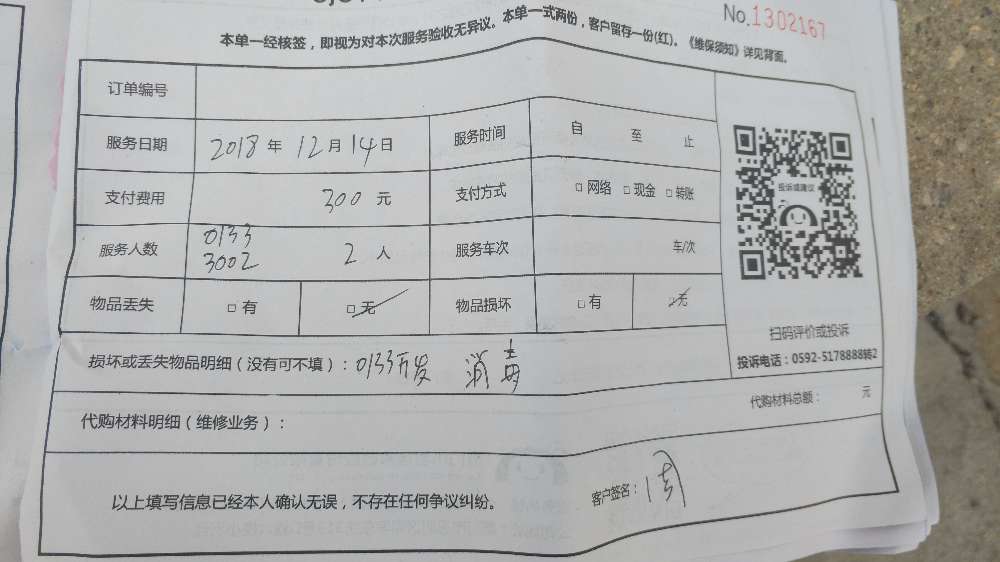 No.1302167
本单一经核签，即视为对本次服务验收无异议。本单一式两份，客户留存一份(红)。《维保须知》详见背面。
订单编号
服务日期 2018 年 12 月 14 日 服务时间 自 至 止
支付费用 300 元 支付方式 □ 网络 □ 现金 □ 转账
投诉或建议
服务人数 0133 3002 2 人 服务车次 车/次
物品丢失 □ 有 □ 无 物品损坏 □ 有 无
扫码评价或投诉
投诉电话：0592-5178888转2
损坏或丢失物品明细（没有可不填）：0133开发 消毒
代购材料明细（维修业务）： 代购材料总额： 元
以上填写信息已经本人确认无误，不存在任何争议纠纷。 客户签名：